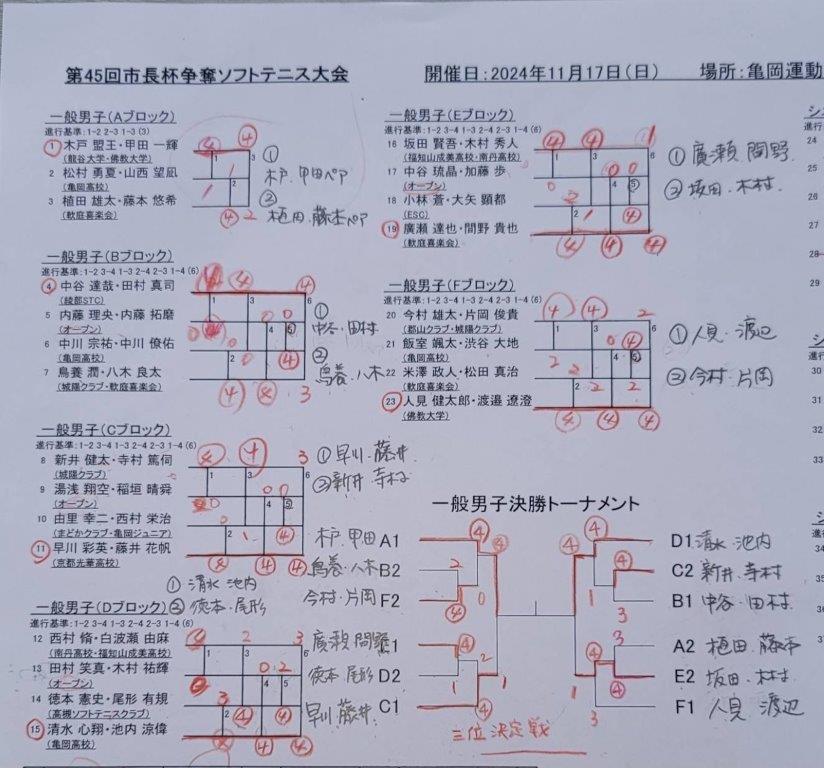 第45回市長杯争奪ソフトテニス大会
開催日:2024年11月17日(日)
場所:亀岡運動
一般男子(Aブロック)
進行基準:1-2 2-3 1-3 (3)
1 木戸 盟王・甲田 一輝
(龍谷大学・佛教大学)
2 松村 勇夏・山西 望凪
(亀岡高校)
3 植田 雄太・藤本 悠希
(軟庭喜楽会)
①
木戸 甲田ペア
②
植田 藤本ペア
一般男子(Bブロック)
進行基準:1-2 3-4 1-3 2-4 2-3 1-4 (6)
4 中谷 達哉・田村 真司
(綾部STC)
5 内藤 理央・内藤 拓磨
(オープン)
6 中川 宗祐・中川 僚佑
(亀岡高校)
7 鳥養 潤・八木 良太
(城陽クラブ・軟庭喜楽会)
①
中谷・田村
②
鳥養 八木
一般男子(Cブロック)
進行基準:1-2 3-4 1-3 2-4 2-3 1-4 (6)
8 新井 健太・寺村 篤伺
(城陽クラブ)
9 湯浅 翔空・稲垣 晴舜
(オープン)
10 由里 幸二・西村 栄治
(まどかクラブ・亀岡ジュニア)
11 早川 彩英・藤井 花帆
(京都光華高校)
①早川 藤井
②新井 寺村
一般男子(Dブロック)
12 西村 脩・白波瀬 由麻
(南丹高校・福知山成美高校)
13 田村 笑真・木村 祐輝
(オープン)
14 徳本 憲史・尾形 有規
(高槻ソフトテニスクラブ)
15 清水 心翔・池内 涼偉
(亀岡高校)
① 清水 池内
② 徳本・尾形
一般男子(Eブロック)
進行基準:1-2 3-4 1-3 2-4 2-3 1-4 (6)
16 坂田 賢吾・木村 秀人
(福知山成美高校・南丹高校)
17 中谷 琉晶・加藤 歩
(オープン)
18 小林 蒼・大矢 顕都
(ESC)
19 廣瀬 達也・間野 貴也
(軟庭喜楽会)
① 廣瀬 間野
② 坂田 木村
一般男子(Fブロック)
進行基準:1-2 3-4 1-3 2-4 2-3 1-4 (6)
20 今村 雄太・片岡 俊貴
(郡山クラブ・城陽クラブ)
21 飯室 颯太・渋谷 大地
(亀岡高校)
22 米澤 政人・松田 真治
(軟庭喜楽会)
23 人見 健太郎・渡邉 遼澄
(佛教大学)
① 人見 渡辺
② 今村 片岡
一般男子決勝トーナメント
木戸 甲田 A1
鳥養・八木 B2
今村・片岡 F2
廣瀬 間野 E1
徳本 尾形 D2
早川 藤井 C1
D1 清水 池内
C2 新井・寺村
B1 中谷・田村
A2 植田 藤本
E2 坂田 木村
F1 人見 渡辺
三位決定戦